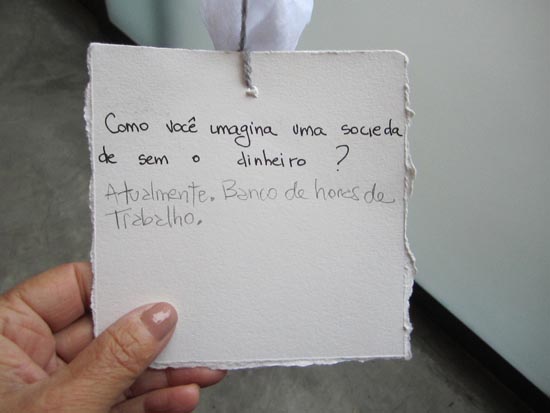 Como você imagina uma socieda
de sem o dinheiro ?
Atualmente. Banco de horas de
Trabalho.